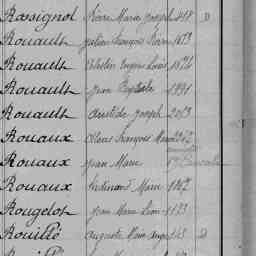 Rossignol Pierre Marie Joseph 418 D
Rouault Julien François Pierre 1673
Rouault Célestin Eugène Louis 1874
Rouault Jean Baptiste 1991
Rouault Aristide Joseph 2013
Rouaux Alexis François Marie 2012
Rouaux Jean Marie
Rouaux Ferdinand Marie 1867
Rougelot Jean Marie Léon 1133
Rouillé Auguste Marie Ange 143 D